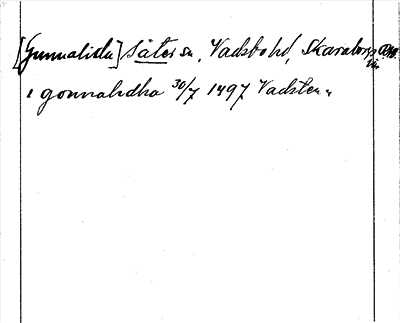 [Gunnalida] Säter sn, Vadsbo hd, Skaraborgs
i gonnalidha 30/7 1497 Vadsten